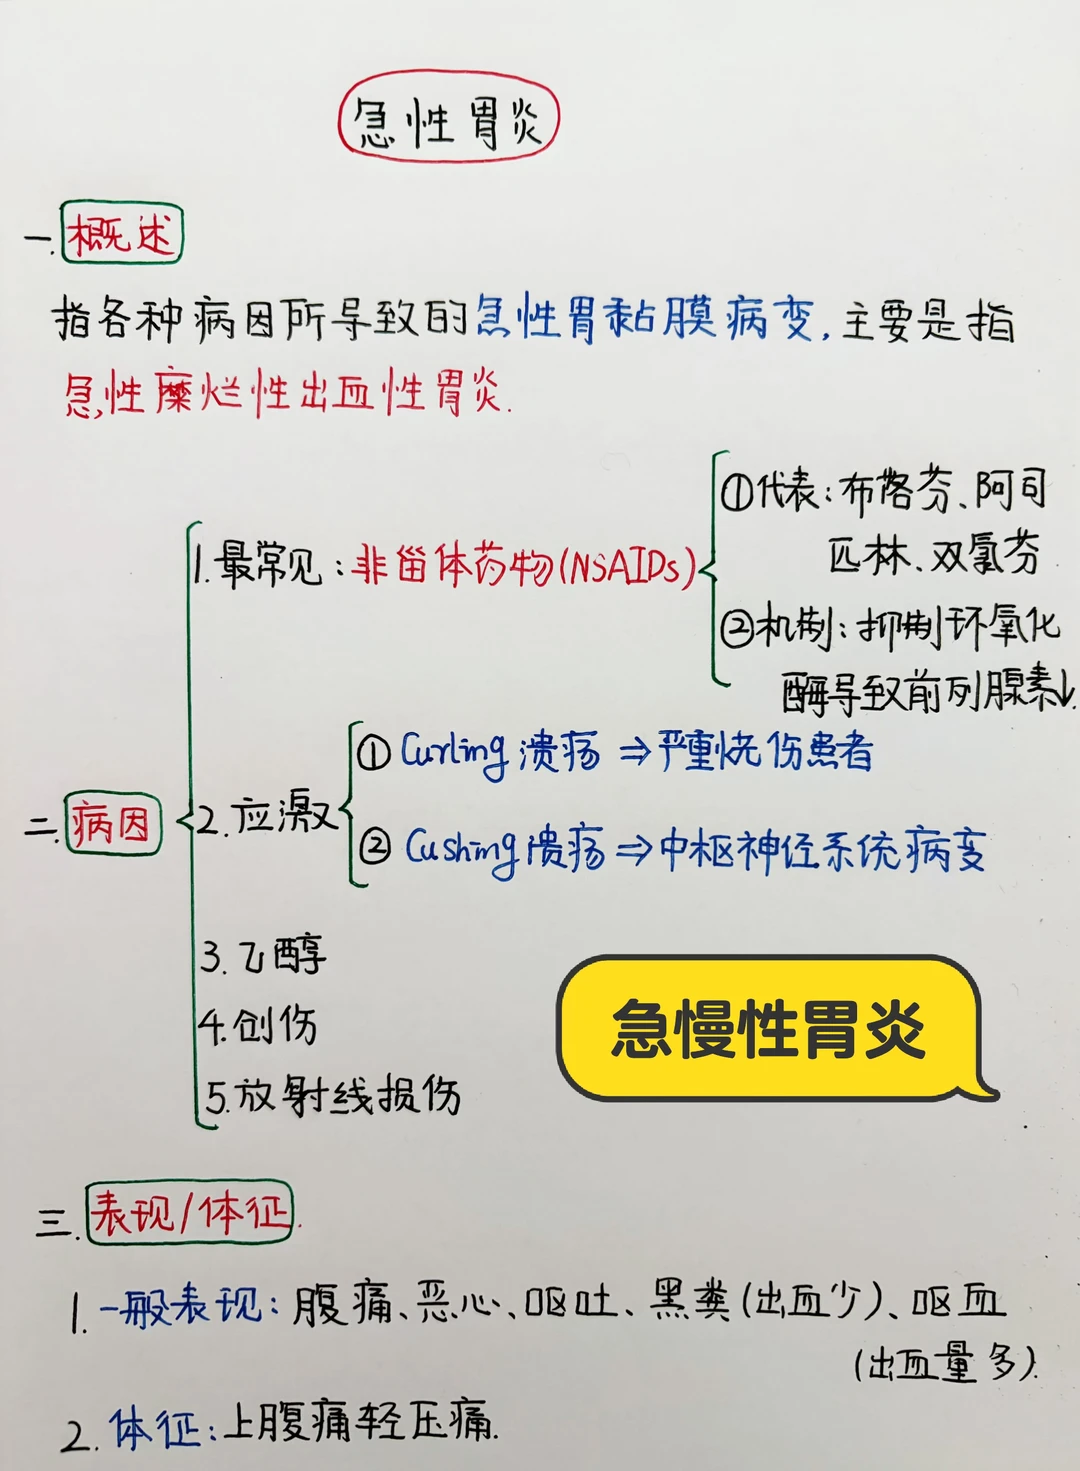 急性胃炎
一.概述
指各种病因所导致的急性胃黏膜病变,主要是指
急性糜烂性出血性胃炎.
二.病因
1.最常见:非甾体药物(NSAIDs)
①代表:布洛芬、阿司
匹林、双氯芬
②机制:抑制环氧化
酶导致前列腺素↓.
2.应激
① Curling溃疡⇒严重烧伤患者
② Cushing溃疡⇒中枢神经系统病变
3.乙醇
4.创伤
5.放射线损伤
急慢性胃炎
三.表现/体征.
1.一般表现:腹痛、恶心、呕吐、黑粪(出血少)、呕血
(出血量多).
2.体征:上腹痛轻压痛.